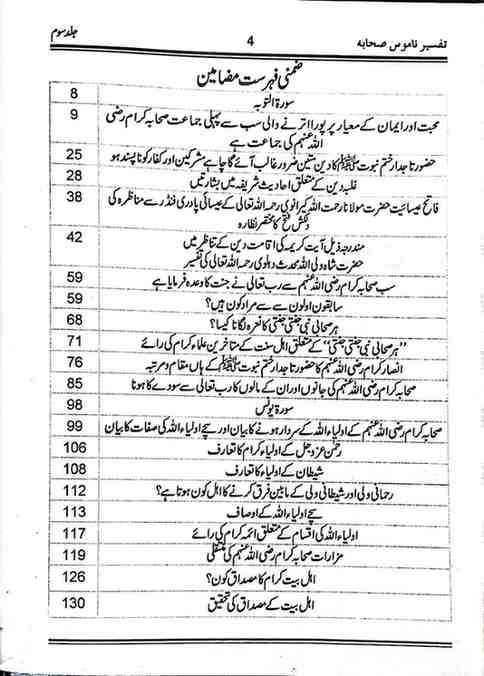 تفسیر ناموس صحابہ 4 جلد سوم
ضمنی فہرست مضامین
سورۃ التوبہ 8
محبت اور ایمان کے معیار پر پورا اترنے والی سب سے پہلی جماعت صحابہ کرام رضی 9
اللہ عنہم کی جماعت ہے
حضور تاجدار ختم نبوت ﷺ کا دین متین ضرور غالب آئے گا چاہے مشرکین اور کفار کو ناپسند ہو 25
غلبہ دین کے متعلق احادیث شریفہ میں بشارتیں 28
فاتح عیسائیت حضرت مولانا رحمت اللہ کیرانوی رحمہ اللہ تعالی کے عیسائی پادری فنڈر سے مناظرہ کی 38
دلکش فتح کا مختصر نظارہ
مندرجہ ذیل آیت کریمہ کی اقامت دین کے تناظر میں 42
حضرت شاہ ولی اللہ محدث دہلوی رحمہ اللہ تعالی کی تفسیر
سب صحابہ کرام رضی اللہ عنہم سے رب تعالی نے جنت کا وعدہ فرمایا ہے 59
سابقون اولون سے مراد کون ہیں؟ 59
ہر صحابی نبی جنتی جنتی کا نعرہ لگانا کیسا؟ 68
"ہر صحابی نبی جنتی جنتی" کے متعلق اہل سنت کے متاخرین علماء کرام کی رائے 71
انصار کرام رضی اللہ عنہم کا حضور تاجدار ختم نبوت ﷺ کے ہاں مقام و مرتبہ 76
صحابہ کرام رضی اللہ عنہم کی جانوں اور ان کے مالوں کا رب تعالی سے سودے کا ہونا 85
سورۃ یونس 98
صحابہ کرام رضی اللہ عنہم کے اولیاء اللہ کے سردار ہونے کا بیان اور سچے اولیاء اللہ کی صفات کا بیان 99
رحمن عزوجل کے اولیاء کرام کا تعارف 106
شیطان کے اولیاء کا تعارف 108
رحمانی ولی اور شیطانی ولی کے مابین فرق کرنے کا اہل کون ہوتا ہے؟ 112
سچے اولیاء اللہ کے اوصاف 113
اولیاء اللہ کی اقسام کے متعلق ائمہ کرام کی رائے 117
مزارات صحابہ کرام رضی اللہ عنہم کی منتقلی 119
اہل بیت کرام کا مصداق کون؟ 126
اہل بیت کے مصداق کی تحقیق 130